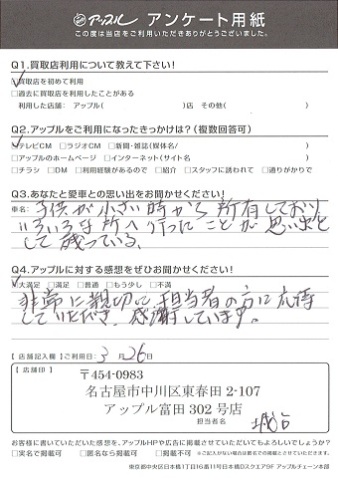 アップル アンケート用紙
この度は当店をご利用いただきありがとうございました。
Q1.買取店利用について教えて下さい!
□買取店を初めて利用
□過去に買取店を利用したことがある
利用した店舗: アップル( )店 その他( )
Q2.アップルをご利用になったきっかけは?(複数回答可)
□テレビCM □ラジオCM □新聞・雑誌(媒体名/ )
□アップルのホームページ □インターネット(サイト名 )
□チラシ □DM □利用経験があるので □紹介 □スタッフに誘われて □通りがかりで
Q3.あなたと愛車との思い出をお聞かせください!
車名: 子供が小さい時から所有しており
いろいろな所へ行ったことが思い出と
して残っている。
Q4.アップルに対する感想をぜひお聞かせください!
□大満足 □満足 □普通 □もう少し □不満
非常に親切に担当者の方に応待
していただき、感謝しています。
【店舗記入欄】ご利用日: 3月26日
【店舗印】
〒454-0983
名古屋市中川区東春田2-107
アップル富田302号店
担当者名
お客様に書いていただいた感想を、アップルHPや広告に掲載させていただいてもよろしいでしょうか?
□実名で掲載可 □匿名なら掲載可 □掲載不可
東京都中央区日本橋1丁目16番11号日本橋Dスクエア9F アップルチェーン本部